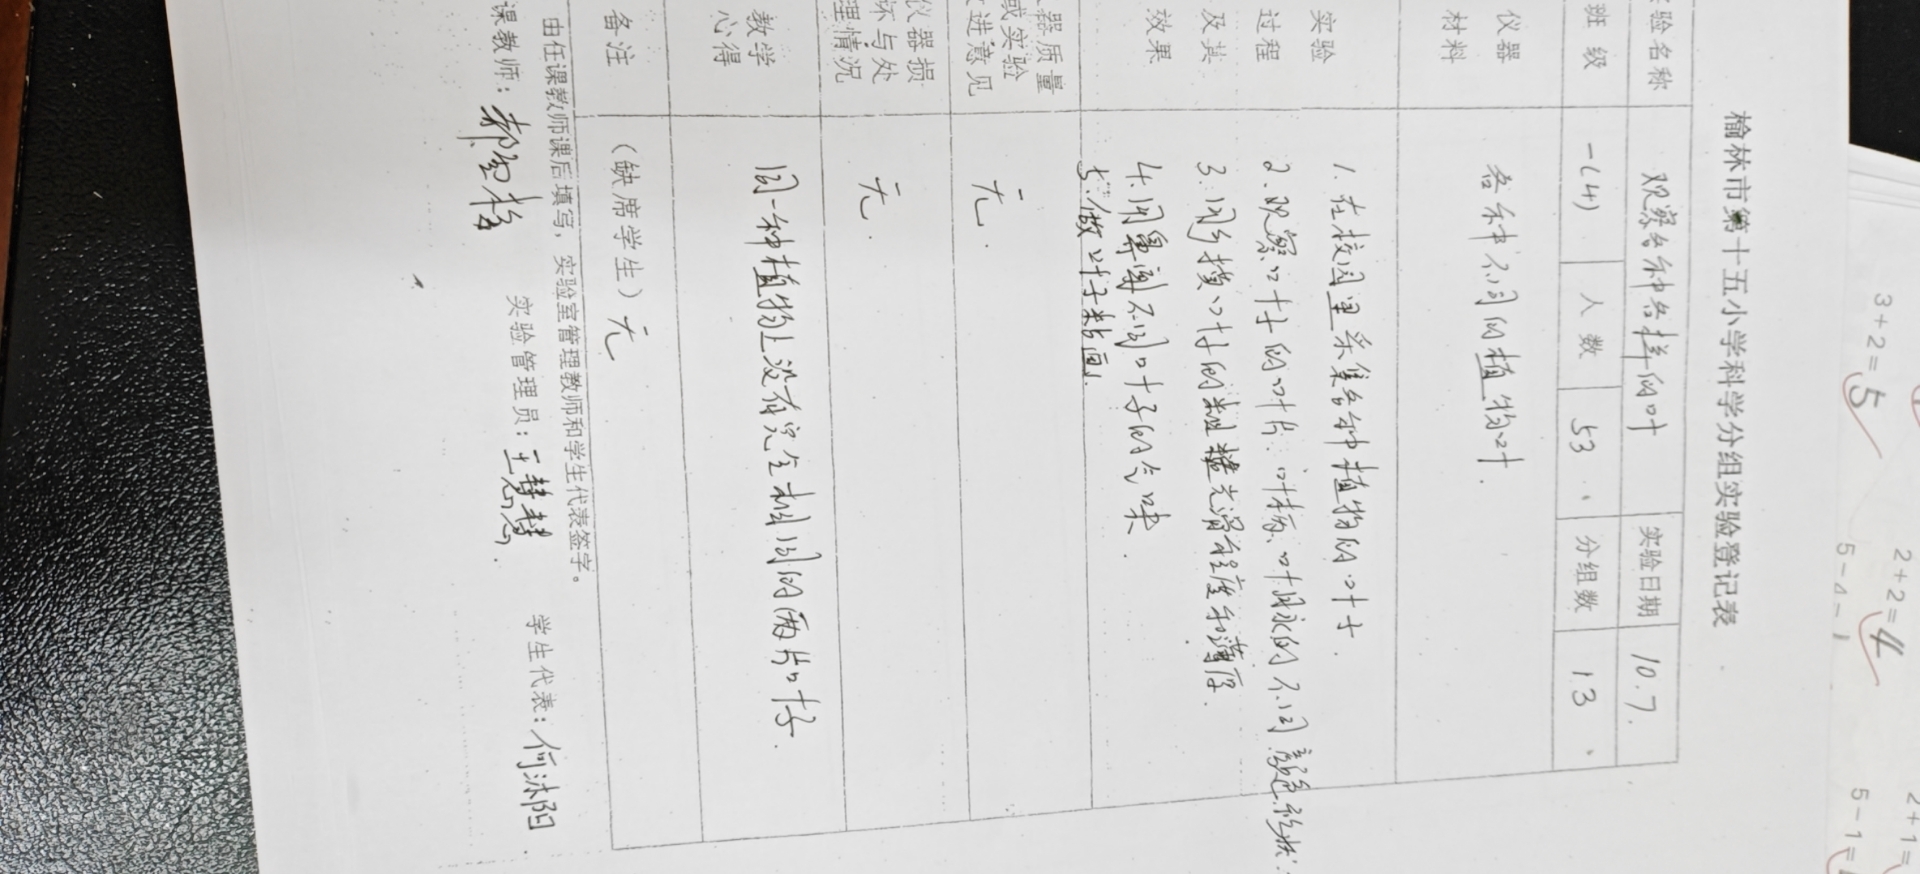 榆林市第十五小学科学分组实验登记表
验名称 观察各种各样的叶 实验日期 10.7.
班级 一(4) 人数 53 分组数 13
仪器材料 各种不同的植物叶.
实验过程及其效果
1. 在校园里采集各种植物的叶子.
2. 观察叶子的叶片、叶柄、叶脉的不同颜色.形状.
3. 用手摸叶子的粗糙光滑程度和薄厚.
4. 用鼻闻不同叶子的气味.
5. 做叶子粘画.
器质量
或实验
进意见 无.
仪器损
坏与处
理情况 无.
教学心得 同一种植物上没有完全相同的两片叶子.
备注 (缺席学生) 无
由任课教师课后填写,实验室管理教师和学生代表签字。
课教师: 实验管理员: 王慧慧. 学生代表: 何沐阳
3+2=5
2+2=4
5-4=1
2+1=
5-1=